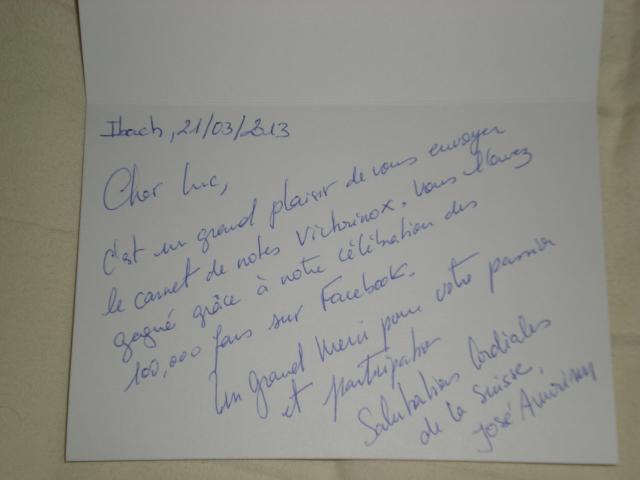 Ibach, 21/03/2013
Cher Luc,
c'est un grand plaisir de vous envoyer
le carnet de notes Victorinox. Vous l'avez
gagné grâce à notre célébration des
100,000 fans sur Facebook.
Un grand Merci pour votre passion
et participation
Salutations Cordiales
de la Suisse,
José